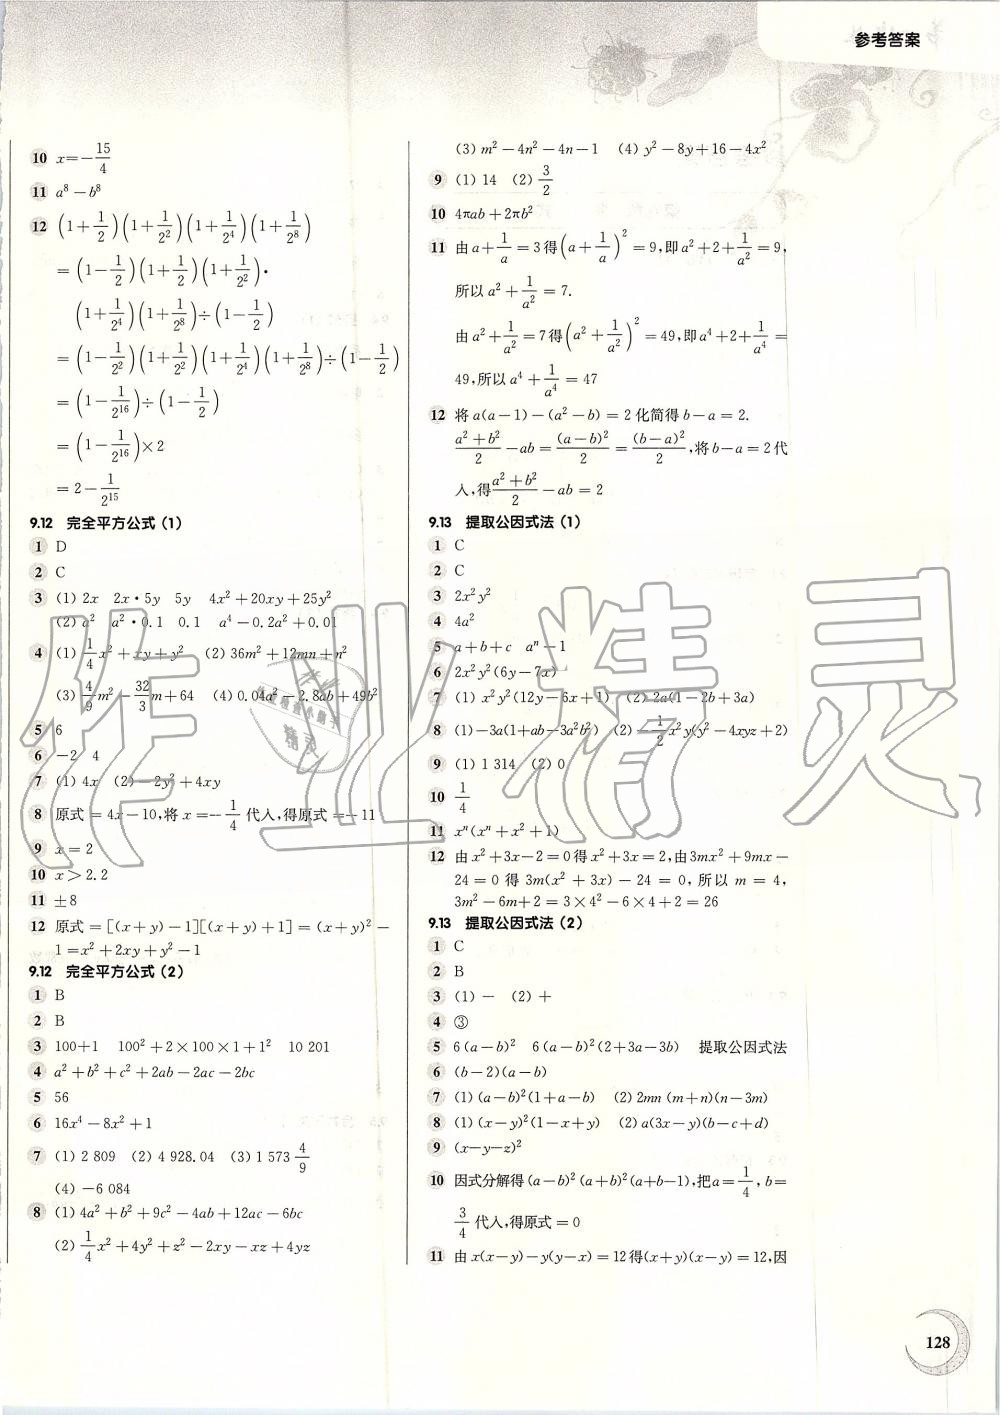 参考答案
10 x=-15/4
11 a⁸-b⁸
12 (1+1/2)(1+1/2²)(1+1/2⁴)(1+1/2⁸)
=(1-1/2)(1+1/2)(1+1/2²)·
(1+1/2⁴)(1+1/2⁸)÷(1-1/2)
=(1-1/2²)(1+1/2²)(1+1/2⁴)(1+1/2⁸)÷(1-1/2)
=(1-1/2¹⁶)÷(1-1/2)
=(1-1/2¹⁶)×2
=2-1/2¹⁵
9.12 完全平方公式(1)
1 D
2 C
3 (1) 2x 2x·5y 5y 4x²+20xy+25y²
(2) a² a²·0.1 0.1 a⁴-0.2a²+0.01
4 (1) 1/4x²+xy+y² (2) 36m²+12mn+n²
(3) 4/9m²-32/3m+64 (4) 0.04a²-2.8ab+49b²
5 6
6 -2 4
7 (1) 4x (2) -2y²+4xy
8 原式=4x-10,将x=-1/4代入,得原式=-11
9 x=2
10 x>2.2
11 ±8
12 原式=[(x+y)-1][(x+y)+1]=(x+y)²-
1=x²+2xy+y²-1
9.12 完全平方公式(2)
1 B
2 B
3 100+1 100²+2×100×1+1² 10 201
4 a²+b²+c²+2ab-2ac-2bc
5 56
6 16x⁴-8x²+1
7 (1) 2 809 (2) 4 928.04 (3) 1 573 4/9
(4) -6 084
8 (1) 4a²+b²+9c²-4ab+12ac-6bc
(2) 1/4x²+4y²+z²-2xy-xz+4yz
(3) m²-4n²-4n-1 (4) y²-8y+16-4x²
9 (1) 14 (2) 3/2
10 4πab+2πb²
11 由a+1/a=3得(a+1/a)²=9,即a²+2+1/a²=9,
所以a²+1/a²=7.
由a²+1/a²=7得(a²+1/a²)²=49,即a⁴+2+1/a⁴=
49,所以a⁴+1/a⁴=47
12 将a(a-1)-(a²-b)=2化简得b-a=2.
(a²+b²)/2-ab=(a-b)²/2=(b-a)²/2,将b-a=2代
入,得(a²+b²)/2-ab=2
9.13 提取公因式法(1)
1 C
2 C
3 2x²y²
4 4a²
5 a+b+c aⁿ-1
6 2x²y²(6y-7x)
7 (1) x²y²(12y-6x+1) (2) 2a(1-2b+3a)
8 (1) -3a(1+ab-3a²b²) (2) -1/2x²y(y²-4xyz+2)
9 (1) 1 314 (2) 0
10 1/4
11 xⁿ(xⁿ+x²+1)
12 由x²+3x-2=0得x²+3x=2,由3mx²+9mx-
24=0得3m(x²+3x)-24=0,所以m=4,
3m²-6m+2=3×4²-6×4+2=26
9.13 提取公因式法(2)
1 C
2 B
3 (1) - (2) +
4 ③
5 6(a-b)² 6(a-b)²(2+3a-3b) 提取公因式法
6 (b-2)(a-b)
7 (1) (a-b)²(1+a-b) (2) 2mn(m+n)(n-3m)
8 (1) (x-y)²(1-x+y) (2) a(3x-y)(b-c+d)
9 (x-y-z)²
10 因式分解得(a-b)²(a+b)²(a+b-1),把a=1/4,b=
3/4代入,得原式=0
11 由x(x-y)-y(y-x)=12得(x+y)(x-y)=12,因
128
作业精灵